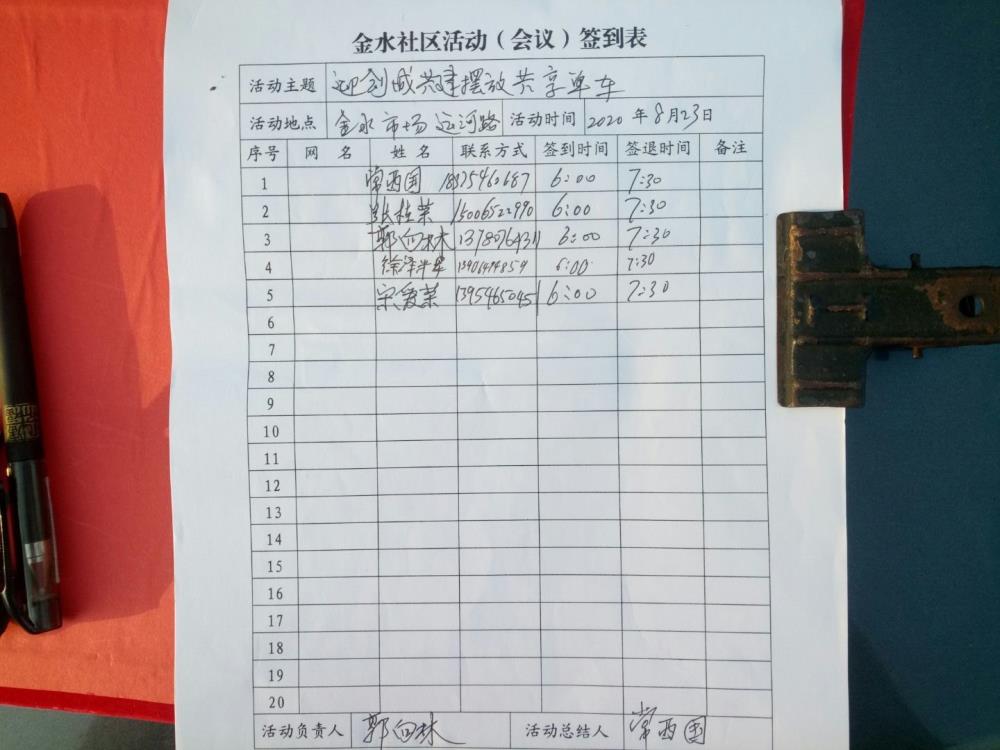 金水社区活动（会议）签到表
活动主题 迎创城共建摆放共享单车
活动地点 金水市场运河路 活动时间 2020年8月23日
序号 网 名 姓 名 联系方式 签到时间 签退时间 备注
1 常西国 6:00 7:30
2 张桂荣 15006522990 6:00 7:30
3 郭向林 6:00 7:30
4 6:00 7:30
5 宋爱荣 13954650451 6:00 7:30
6
7
8
9
10
11
12
13
14
15
16
17
18
19
20
活动负责人 郭向林 活动总结人 常西国